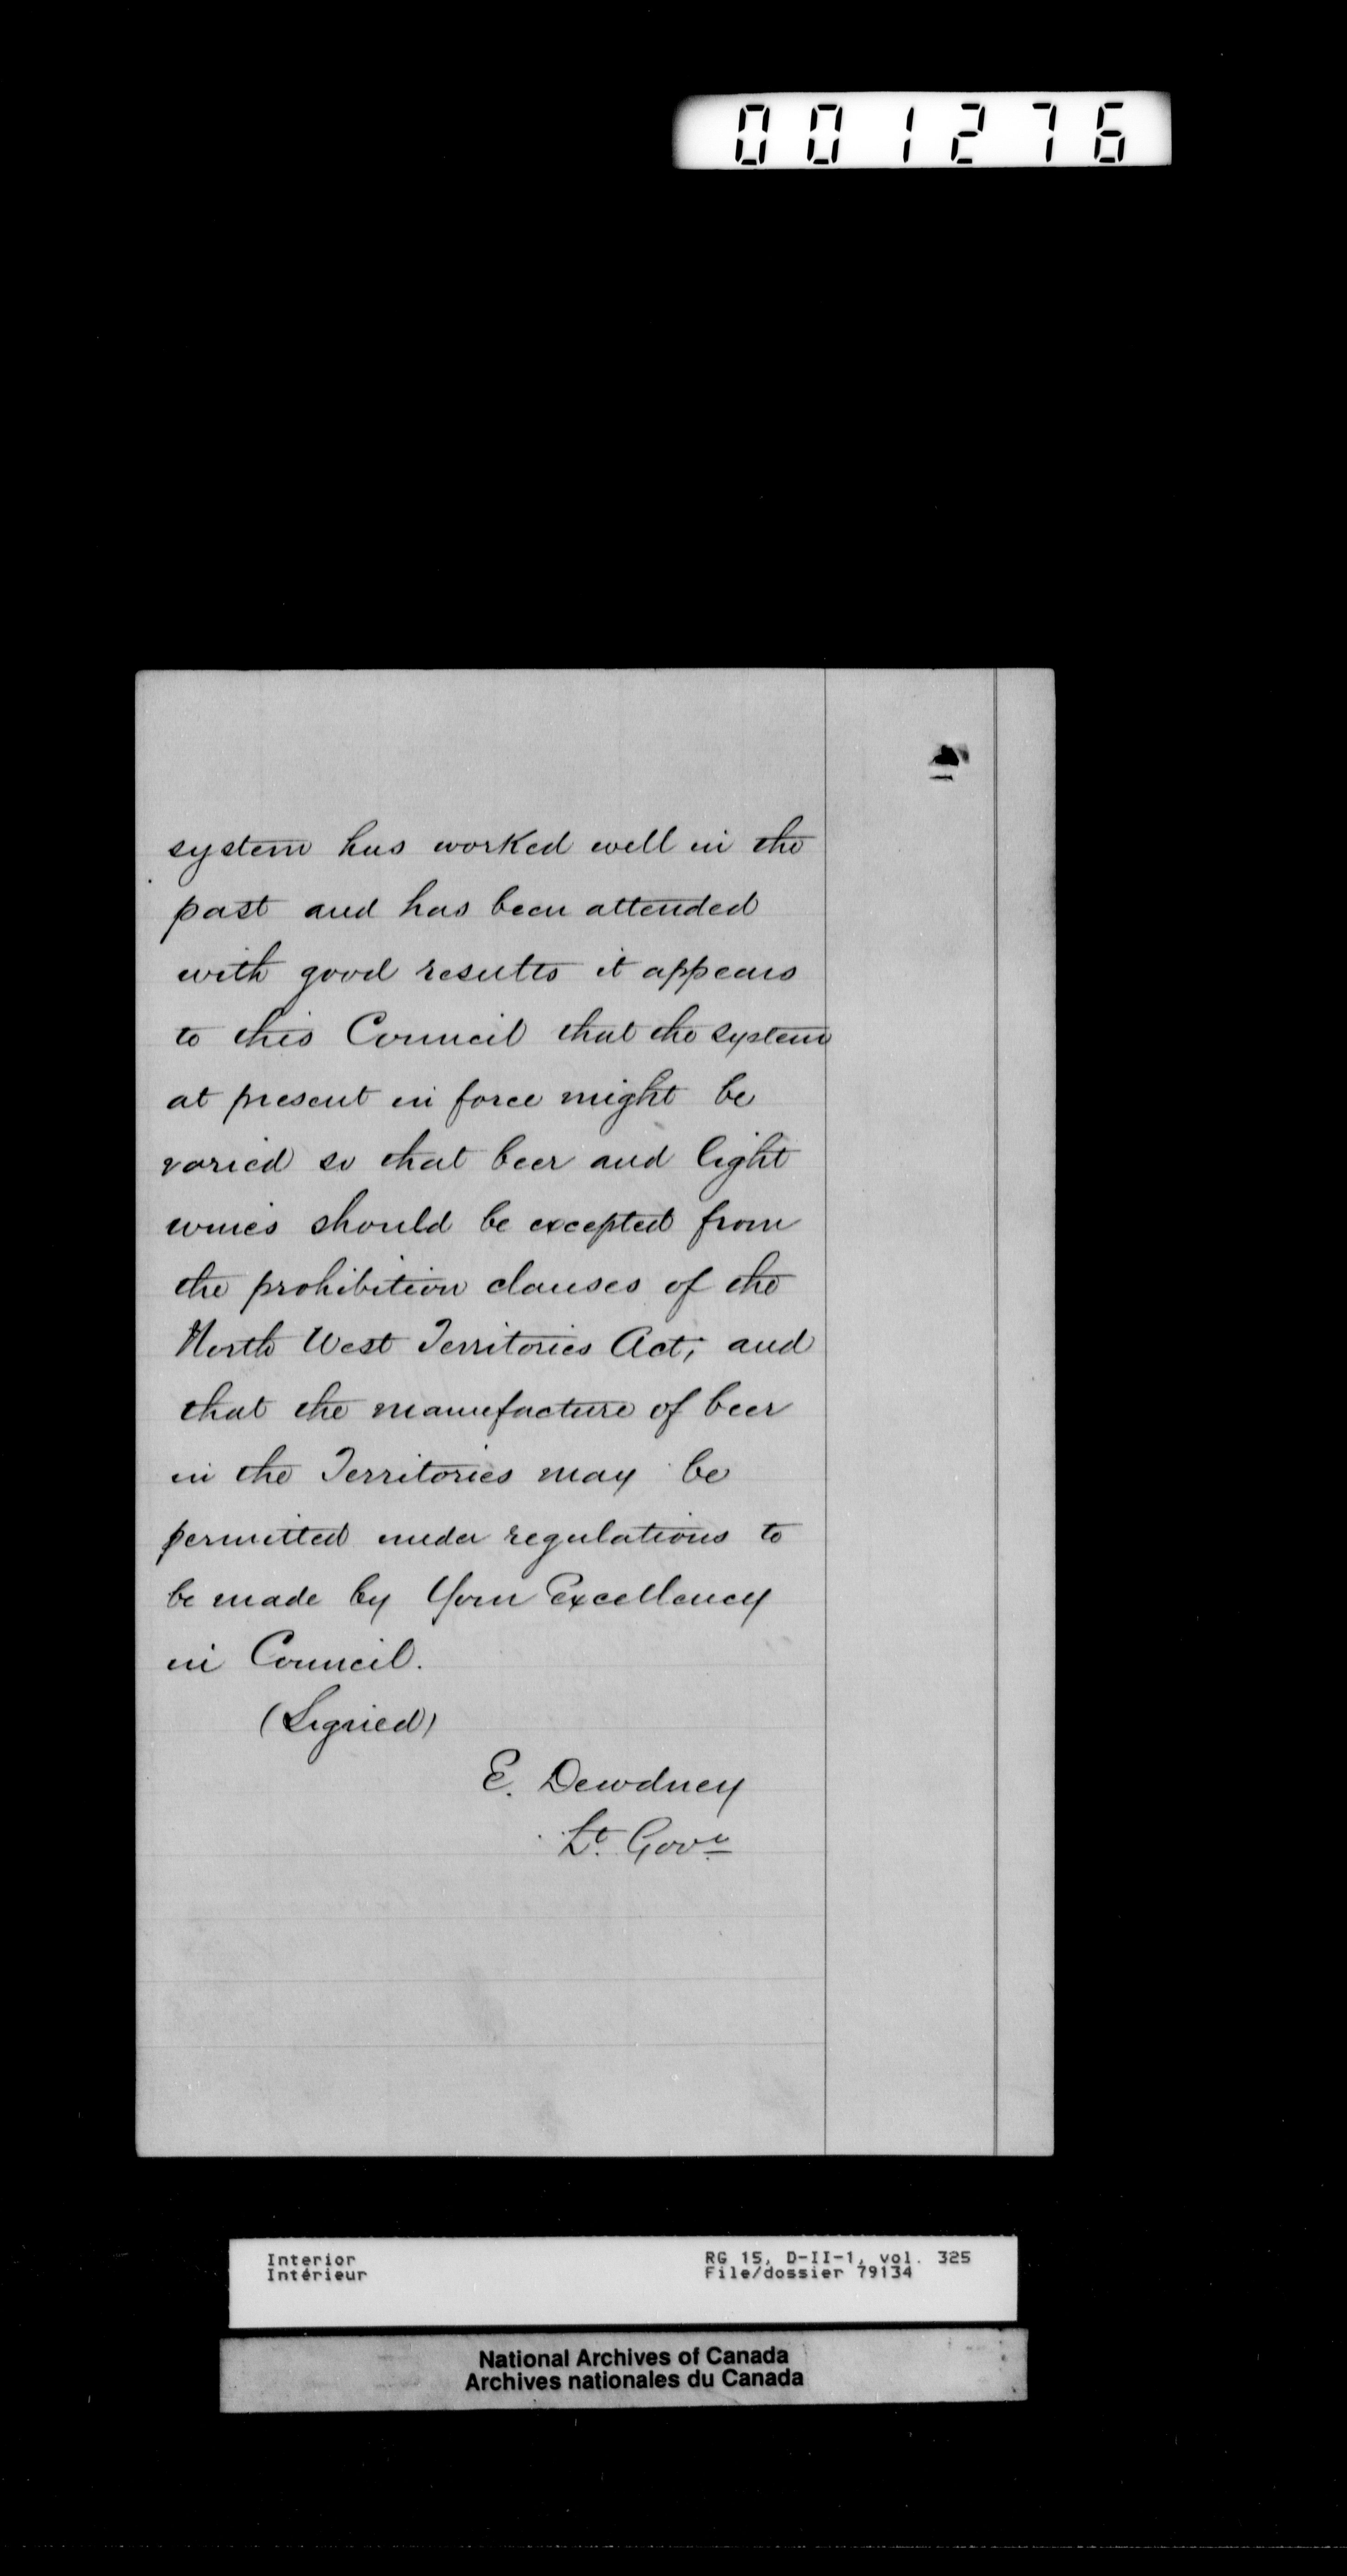 001276
system has worked well in the
past and has been attended
with good results it appears
to this Council that the system
at present in force might be
varied so that beer and light
wines should be excepted from
the prohibition clauses of the
North West Territories Act; and
that the manufacture of beer
in the Territories may be
permitted under regulations to
be made by Your Excellency
in Council.
(Signed)
E. Dewdney
Lt. Govr
Interior
Intérieur
RG 15, D-II-1, vol. 325
File/dossier 79134
National Archives of Canada
Archives nationales du Canada